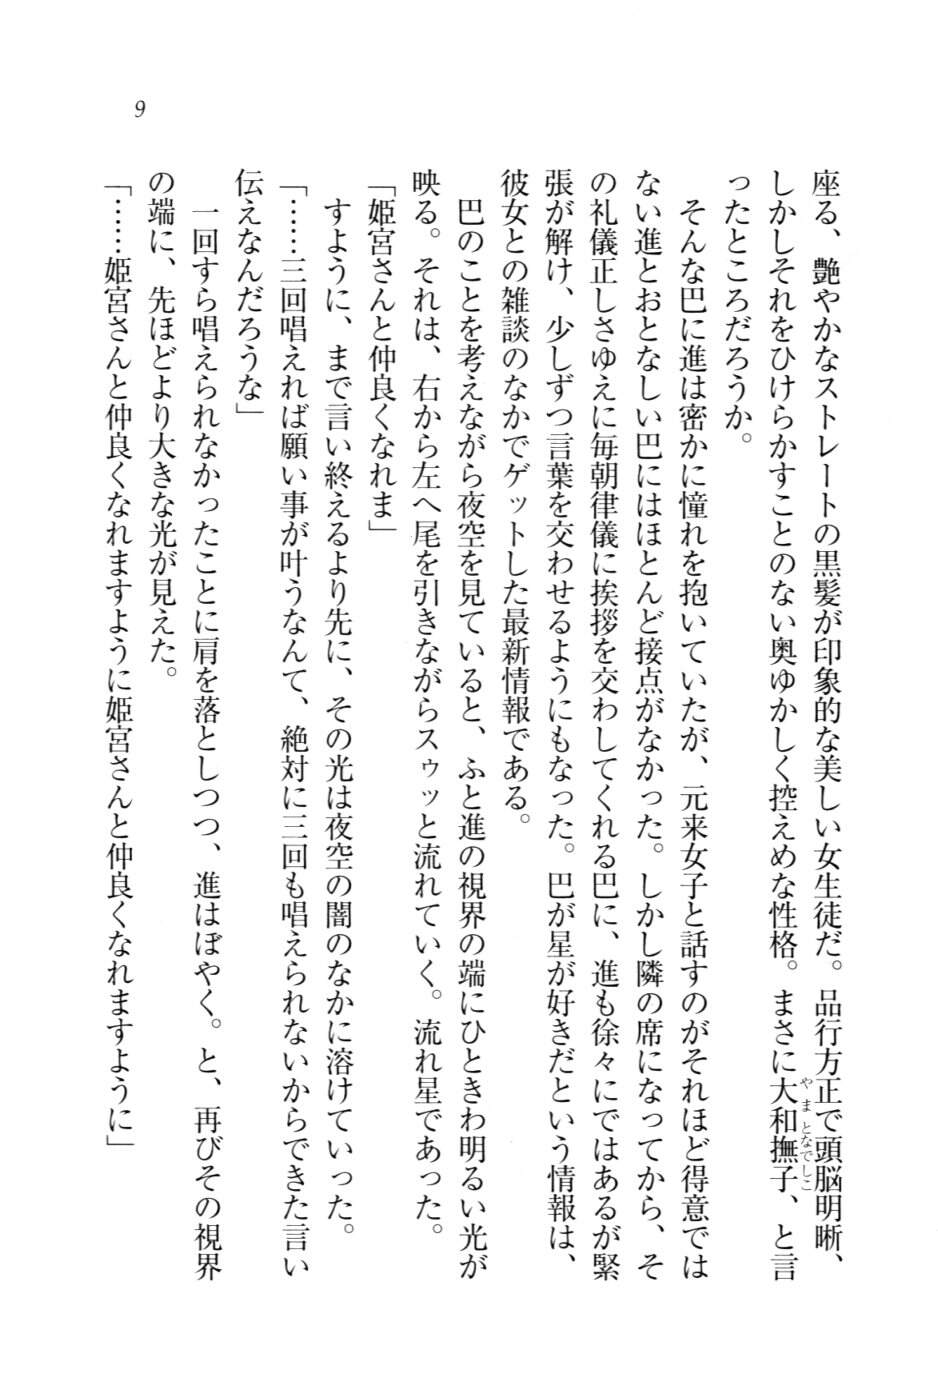 9
座る、艶やかなストレートの黒髪が印象的な美しい女生徒だ。品行方正で頭脳明晰、
しかしそれをひけらかすことのない奥ゆかしく控えめな性格。まさに大和撫子、と言
やまとなでしこ
ったところだろうか。
そんな巴に進は密かに憧れを抱いていたが、元来女子と話すのがそれほど得意では
ない進とおとなしい巴にはほとんど接点がなかった。しかし隣の席になってから、そ
の礼儀正しさゆえに毎朝律儀に挨拶を交わしてくれる巴に、進も徐々にではあるが緊
張が解け、少しずつ言葉を交わせるようにもなった。巴が星が好きだという情報は、
彼女との雑談のなかでゲットした最新情報である。
巴のことを考えながら夜空を見ていると、ふと進の視界の端にひときわ明るい光が
映る。それは、右から左へ尾を引きながらスゥッと流れていく。流れ星であった。
「姫宮さんと仲良くなれま」
すように、まで言い終えるより先に、その光は夜空の闇のなかに溶けていった。
「……三回唱えれば願い事が叶うなんて、絶対に三回も唱えられないからできた言い
伝えなんだろうな」
一回すら唱えられなかったことに肩を落としつつ、進はぼやく。と、再びその視界
の端に、先ほどより大きな光が見えた。
「……姫宮さんと仲良くなれますように姫宮さんと仲良くなれますように」